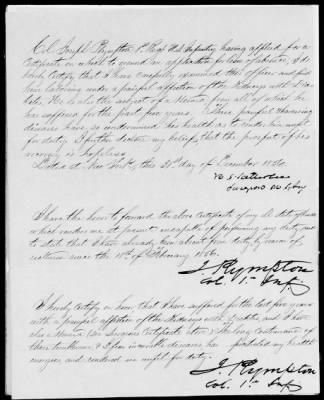 Col. Joseph Plympton 1st Regt U.S. Infantry having applied for a
Certificate on which to ground an application for leave of absence, I do
hereby Certify that I have carefully examined this officer and find
him labouring under a painful affection of the Kidneys with Dia-
betes. He is also the subject of a Hernia, from all of which he
has suffered for the past five years. These painful &
diseases have so undermined his health as to render him unfit
for duty. I further declare my belief, that the prospect of his
recovery is hopeless.
Dated at New York, this 21st day of December 1856.
R. S. Satterlee
Surgeon U.S. Army
I have the honor to forward the above Certificate of my ill state of health
which renders me at present incapable of performing my duty, and
to state that I have already been absent from duty by reason of
sickness since the 18th of February 1856.
J. Plympton
Col. 1st Inf.
I hereby Certify on honor, that I have suffered for the last five years
with a painful affection of the Kidneys with Diabetes, and I have
also a Hernia (see Surgeons Certificate above) & the long continuance of
these troublesome & I fear incurable diseases has prostrated my health
energies, and rendered me unfit for duty.
J. Plympton
Col. 1st Inf.